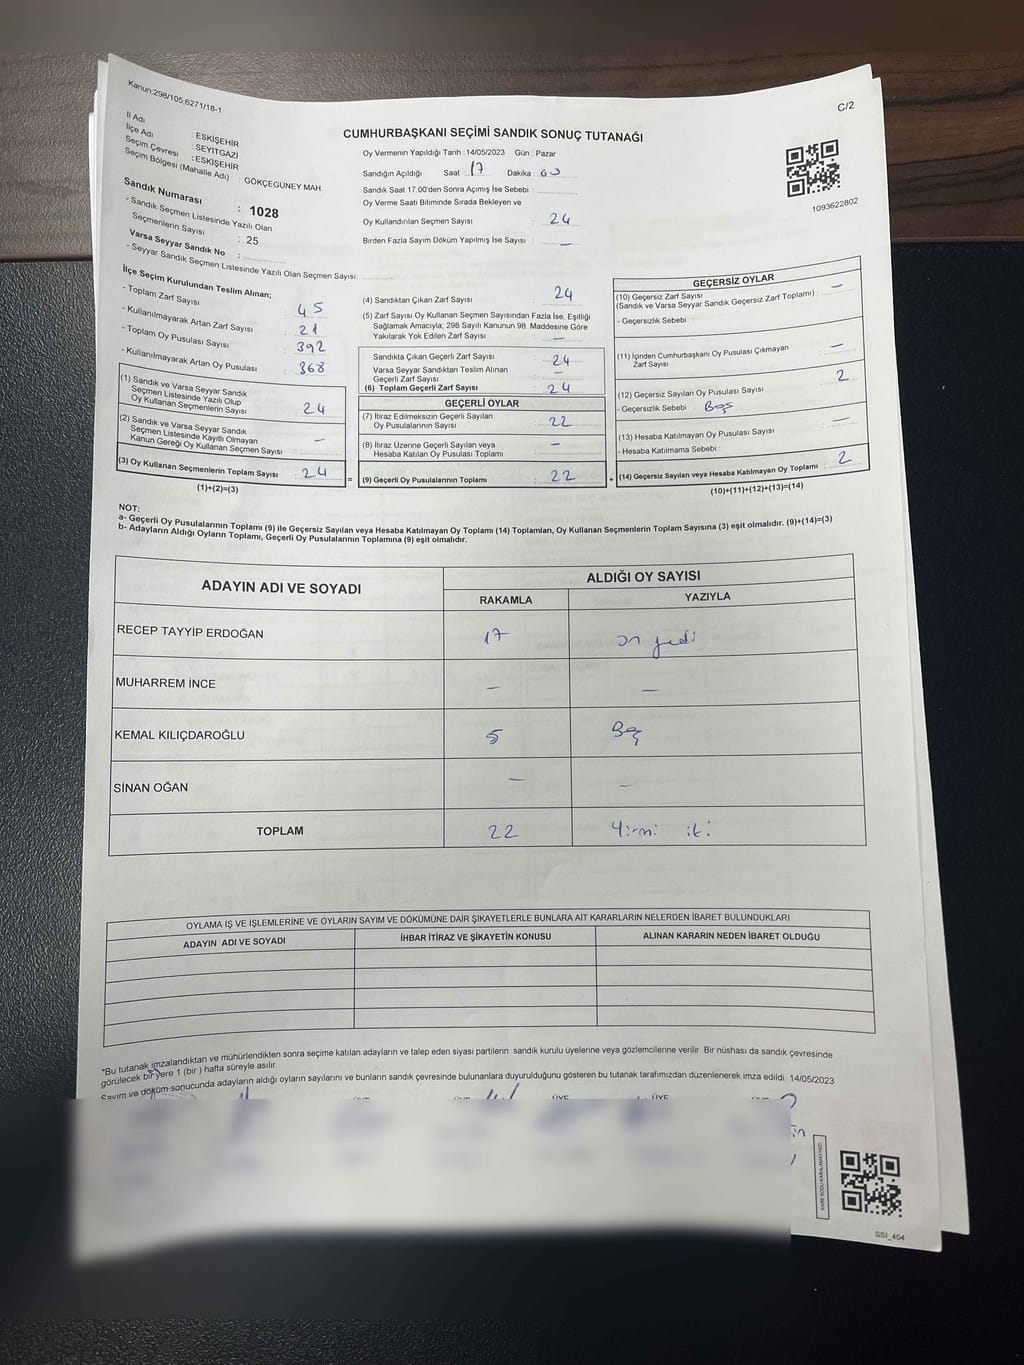 Kanun:298/105,6271/18-1
C/2
CUMHURBAŞKANI SEÇİMİ SANDIK SONUÇ TUTANAĞI
İl Adı : ESKİŞEHİR
İlçe Adı : SEYİTGAZİ
Seçim Çevresi : ESKİŞEHİR
Seçim Bölgesi (Mahalle Adı) : GÖKÇEGÜNEY MAH
Sandık Numarası : 1028
- Sandık Seçmen Listesinde Yazılı Olan
Seçmenlerin Sayısı : 25
Varsa Seyyar Sandık No :
- Seyyar Sandık Seçmen Listesinde Yazılı Olan Seçmen Sayısı:
Oy Vermenin Yapıldığı Tarih :14/05/2023 Gün : Pazar
Sandığın Açıldığı Saat : 17 Dakika : 00
Sandık Saat 17.00'den Sonra Açımış İse Sebebi :
Oy Verme Saati Bitiminde Sırada Bekleyen ve
Oy Kullandırılan Seçmen Sayısı : 24
Birden Fazla Sayım Döküm Yapılmış İse Sayısı : —
1093622802
İlçe Seçim Kurulundan Teslim Alınan;
- Toplam Zarf Sayısı : 45
- Kullanılmayarak Artan Zarf Sayısı : 21
- Toplam Oy Pusulası Sayısı : 392
- Kullanılmayarak Artan Oy Pusulası : 368
(1) Sandık ve Varsa Seyyar Sandık
Seçmen Listesinde Yazılı Olup
Oy Kullanan Seçmenlerin Sayısı : 24
(2) Sandık ve Varsa Seyyar Sandık
Seçmen Listesinde Kayıtlı Olmayan
Kanun Gereği Oy Kullanan Seçmen Sayısı : —
(3) Oy Kullanan Seçmenlerin Toplam Sayısı : 24
(1)+(2)=(3)
(4) Sandıktan Çıkan Zarf Sayısı : 24
(5) Zarf Sayısı Oy Kullanan Seçmen Sayısından Fazla İse, Eşitliği
Sağlamak Amacıyla, 298 Sayılı Kanunun 98. Maddesine Göre
Yakılarak Yok Edilen Zarf Sayısı : —
Sandıkta Çıkan Geçerli Zarf Sayısı : 24
Varsa Seyyar Sandıktan Teslim Alınan
Geçerli Zarf Sayısı : —
(6) Toplam Geçerli Zarf Sayısı : 24
GEÇERLİ OYLAR
(7) İtiraz Edilmeksizin Geçerli Sayılan
Oy Pusulalarının Sayısı : 22
(8) İtiraz Üzerine Geçerli Sayılan veya
Hesaba Katılan Oy Pusulası Toplamı : —
= (9) Geçerli Oy Pusulalarının Toplamı : 22
GEÇERSİZ OYLAR
(10) Geçersiz Zarf Sayısı
(Sandık ve Varsa Seyyar Sandık Geçersiz Zarf Toplamı) : —
- Geçersizlik Sebebi :
(11) İçinden Cumhurbaşkanı Oy Pusulası Çıkmayan
Zarf Sayısı : —
(12) Geçersiz Sayılan Oy Pusulası Sayısı : 2
- Geçersizlik Sebebi : Boş
(13) Hesaba Katılmayan Oy Pusulası Sayısı : —
- Hesaba Katılmama Sebebi :
+ (14) Geçersiz Sayılan veya Hesaba Katılmayan Oy Toplamı : 2
(10)+(11)+(12)+(13)=(14)
NOT:
a- Geçerli Oy Pusulalarının Toplamı (9) ile Geçersiz Sayılan veya Hesaba Katılmayan Oy Toplamı (14) Toplamları, Oy Kullanan Seçmenlerin Toplam Sayısına (3) eşit olmalıdır. (9)+(14)=(3)
b- Adayların Aldığı Oyların Toplamı, Geçerli Oy Pusulalarının Toplamına (9) eşit olmalıdır.
ADAYIN ADI VE SOYADI ALDIĞI OY SAYISI
RAKAMLA YAZIYLA
RECEP TAYYİP ERDOĞAN 17 on yedi
MUHARREM İNCE — —
KEMAL KILIÇDAROĞLU 5 Beş
SİNAN OĞAN — —
TOPLAM 22 Yirmi iki
OYLAMA İŞ VE İŞLEMLERİNE VE OYLARIN SAYIM VE DÖKÜMÜNE DAİR ŞİKAYETLERLE BUNLARA AİT KARARLARIN NELERDEN İBARET BULUNDUKLARI
ADAYIN ADI VE SOYADI İHBAR İTİRAZ VE ŞİKAYETİN KONUSU ALINAN KARARIN NEDEN İBARET OLDUĞU
*Bu tutanak imzalandıktan ve mühürlendikten sonra seçime katılan adayların ve talep eden siyasi partilerin sandık kurulu üyelerine veya gözlemcilerine verilir. Bir nüshası da sandık çevresinde
görülecek bir yere 1 (bir ) hafta süreyle asılır.
Sayım ve döküm sonucunda adayların aldığı oyların sayılarını ve bunların sandık çevresinde bulunanlara duyurulduğunu gösteren bu tutanak tarafımızdan düzenlenerek imza edildi. 14/05/2023
ÜYE ÜYE
SSI_404